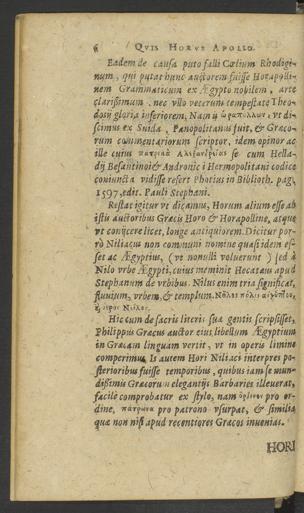 6 QVIS HORVS APOLLO.
Eadem de causa puto falli Cœlium Rhodigi-
num, qui putat hunc auctorem fuisse Horapolli-
nem Grammaticum ex Ægypto nobilem, arte
clarissimum, nec vllo veterum tempestate Theo-
dosij gloria inferiorem, Nam is ut di-
scimus ex Suida, Panopolitanus fuit, & Græco-
rum commentariorum scriptor, idem opinor ac
ille cuius πατρια Αλεξανδρείας se cum Hella-
dij Besantinoi & Andronici Hermopolitani codice
coniuncta vidisse refert Photius in Biblioth. pag.
1597. edit. Pauli Stephani.
Restat igitur vt dicamus, Horum alium esse ab
istis auctoribus Græcis Horo & Horapolline, atque
vt conijcere licet, longe antiquiorem. Dicitur por-
rò Niliacus non communi nomine quasi idem es-
set ac Ægyptius, (vt nonulli voluerunt) sed à
Nilo vrbe Ægypti, cuius meminit Hecatæus apud
Stephanum de vrbibus. Nilus enim tria significat,
fluuium, vrbem, & templum. Νεῖλος πόλις αἰγύπτου,
Νεῖλος.
Hic cum de sacris literis suæ gentis scripsisset,
Philippus Græcus auctor eius libellum Ægyptium
in Græcam linguam vertit, vt in operis limine
comperimus. Is autem Hori Niliaci interpres po-
sterioribus fuisse temporibus, quibus iam se mun-
dissimis Græcorum elegantijs Barbaries illeuerat,
facile comprobatur ex stylo, nam ὄρδινον pro or-
dine, πάτρωνα pro patrono vsurpat, & similia
quæ non nisi apud recentiores Græcos inuenias.
HORI